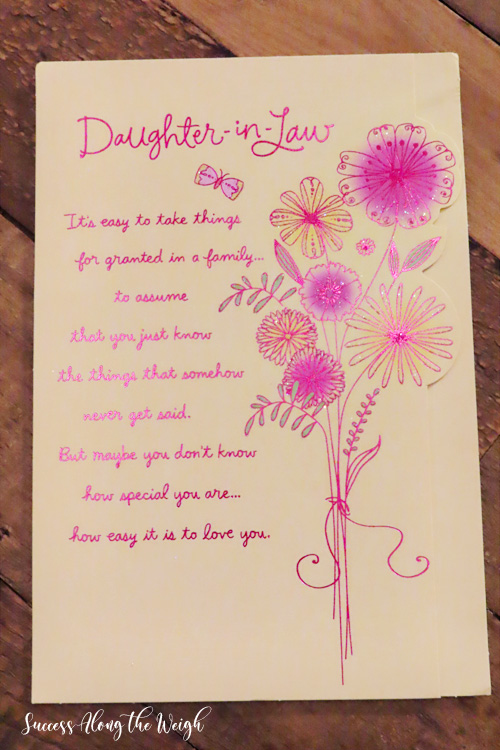 Daughter-in-Law
It's easy to take things
for granted in a family...
to assume
that you just know
the things that somehow
never get said.
But maybe you don't know
how special you are...
how easy it is to love you.
Success Along the Weigh